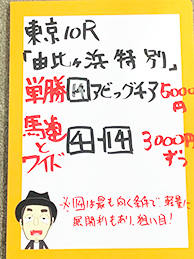 東京10R
「由比ヶ浜特別」
単勝14アビッグチア5000円
馬連とワイド 4-14 3000円ずつ
※14は最も向く条件で、軽量に
展開利もあり、狙い目!